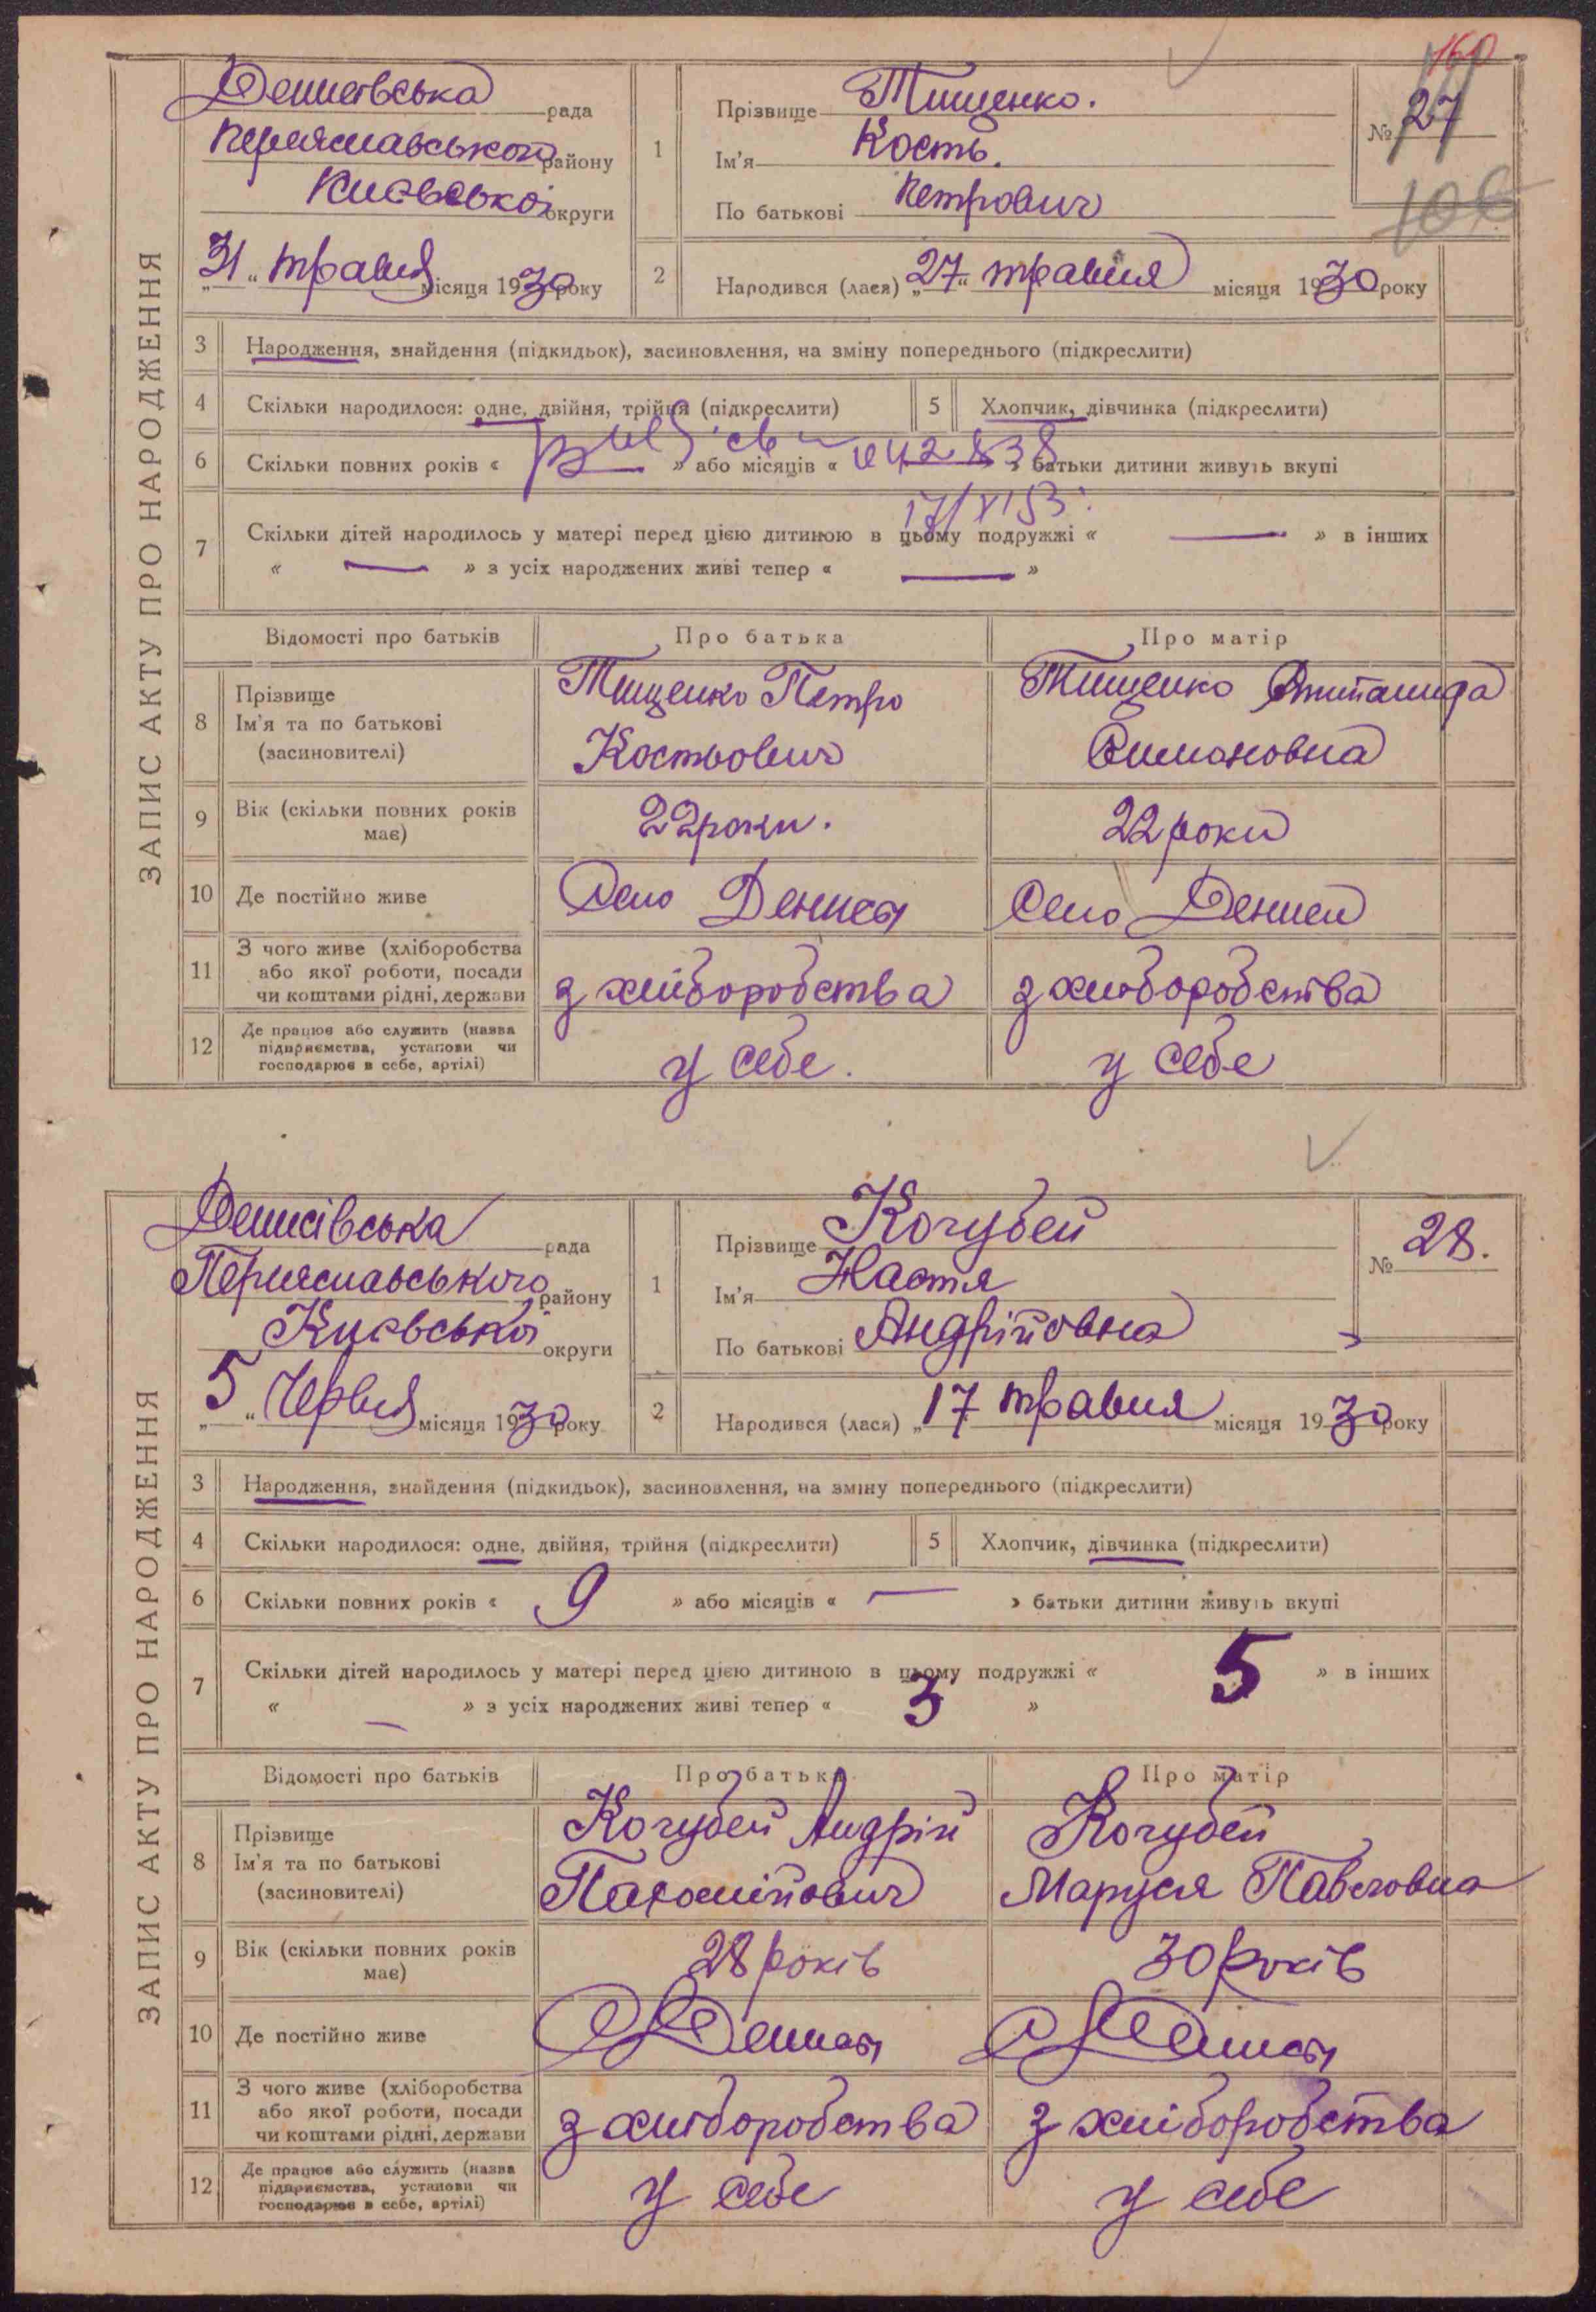 160
ЗАПИС АКТУ ПРО НАРОДЖЕННЯ
Денисівська рада
Переяславського району
Київської округи
„31“ травня місяця 1930 року
1 Прізвище Тищенко.
Ім'я Кость.
По батькові Петрович
№ 27
106
2 Народився (лася) „27“ травня місяця 1930 року
3 Народження, знайдення (підкидьок), засиновлення, на зміну попереднього (підкреслити)
4 Скільки народилося: одне, двійня, трійня (підкреслити) 5 Хлопчик, дівчинка (підкреслити)
6 Скільки повних років « — » або місяців « — » батьки дитини живуть вкупі
17/XI 53.
7 Скільки дітей народилось у матері перед цією дитиною в цьому подружжі « — » в інших
« — » з усіх народжених живі тепер « — »
Відомості про батьків Про батька Про матір
8 Прізвище Ім'я та по батькові (засиновителі) Тищенко Петро Костьович Тищенко Симоновна
9 Вік (скільки повних років має) 22 роки. 22 роки
10 Де постійно живе Село Дениси Село Дениси
11 З чого живе (хліборобства або якої роботи, посади чи коштами рідні, держави з хліборобства з хліборобства
12 Де працює або служить (назва підприємства, установи чи господарює в себе, артілі) у себе. у себе
ЗАПИС АКТУ ПРО НАРОДЖЕННЯ
Денисівська рада
Переяславського району
Київської округи
„5“ Червня місяця 1930 року
1 Прізвище Кочубей
Ім'я Настя
По батькові Андріївна
№ 28.
2 Народився (лася) „17 травня місяця 1930 року
3 Народження, знайдення (підкидьок), засиновлення, на зміну попереднього (підкреслити)
4 Скільки народилося: одне, двійня, трійня (підкреслити) 5 Хлопчик, дівчинка (підкреслити)
6 Скільки повних років « 9 » або місяців « — » батьки дитини живуть вкупі
7 Скільки дітей народилось у матері перед цією дитиною в цьому подружжі « 5 » в інших
« — » з усіх народжених живі тепер « 3 »
Відомості про батьків Про батька Про матір
8 Прізвище Ім'я та по батькові (засиновителі) Кочубей Андрій Кочубей Маруся Павловна
9 Вік (скільки повних років має) 28 років 30 років
10 Де постійно живе с. Дениси с. Дениси
11 З чого живе (хліборобства або якої роботи, посади чи коштами рідні, держави з хліборобства з хліборобства
12 Де працює або служить (назва підприємства, установи чи господарює в себе, артілі) у себе у себе